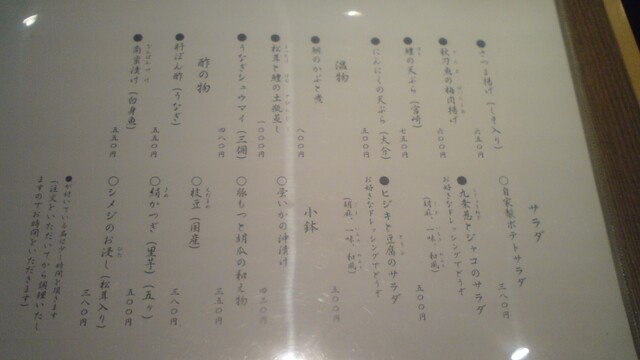 ●さつま揚げ(しそ入り)
六五〇円
六〇〇円
●鱧の天ぷら(宮崎)
七五〇円
●にんにくの天ぷら(大分)
五〇〇円
温物
●鯛のかぶと煮
八〇〇円
●松茸と鱧の土瓶蒸し
一〇〇〇円
●うなぎシュウマイ(三個)
四八〇円
酢の物
●肝ぽん酢(うなぎ)
五五〇円
●南蛮漬け(白身魚)
五五〇円
サラダ
〇自家製ポテトサラダ
三八〇円
●九条葱とジャコのサラダ
お好きなドレッシングでどうぞ
(胡麻、一味、和風)
五〇〇円
●ヒジキと豆腐のサラダ
お好きなドレッシングでどうぞ
(胡麻、一味、和風)
五〇〇円
小鉢
〇蛍いかの沖漬け
四二〇円
〇豚もつと胡瓜の和え物
三五〇円
〇枝豆(国産)
三八〇円
〇絹かつぎ(里芋)(五ヶ)
五〇〇円
〇シメジのお浸し(松茸入り)
三八〇円
●が付いている品は少し時間を頂きます
(注文をいただいてから調理いたし
ますのでお時間をいただきます)